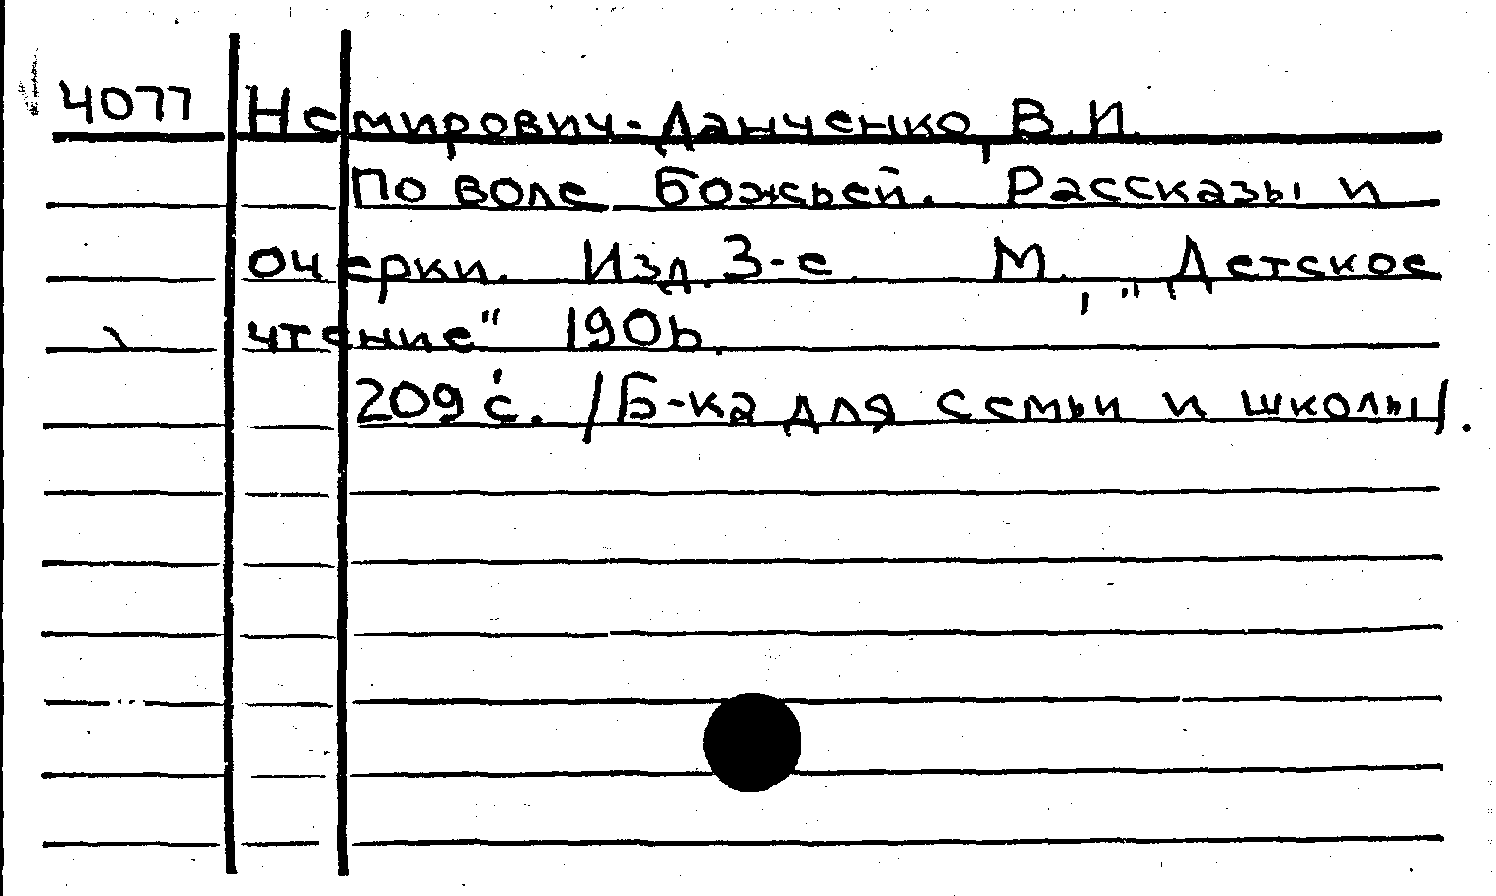 4077 Немирович-Данченко, В.И.
По воле Божьей. Рассказы и
очерки. Изд. 3-е. М., "Детское
чтение" 1906.
209 с. /Б-ка для семьи и школы/.